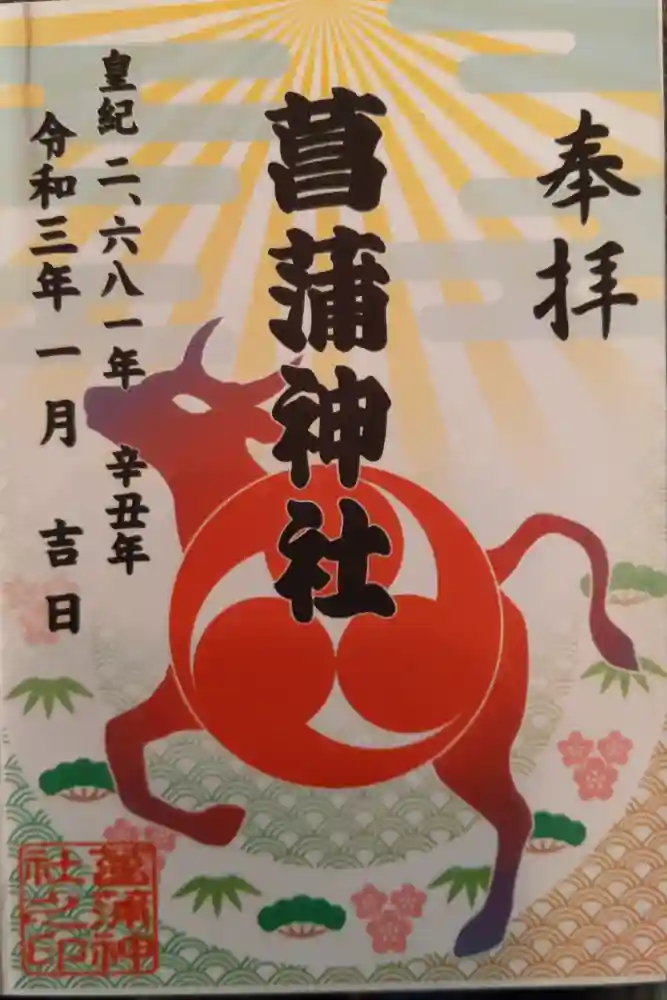 奉拝
菖蒲神社
皇紀二、六八一年 辛丑年
令和三年一月 吉日
菖蒲神
社之印